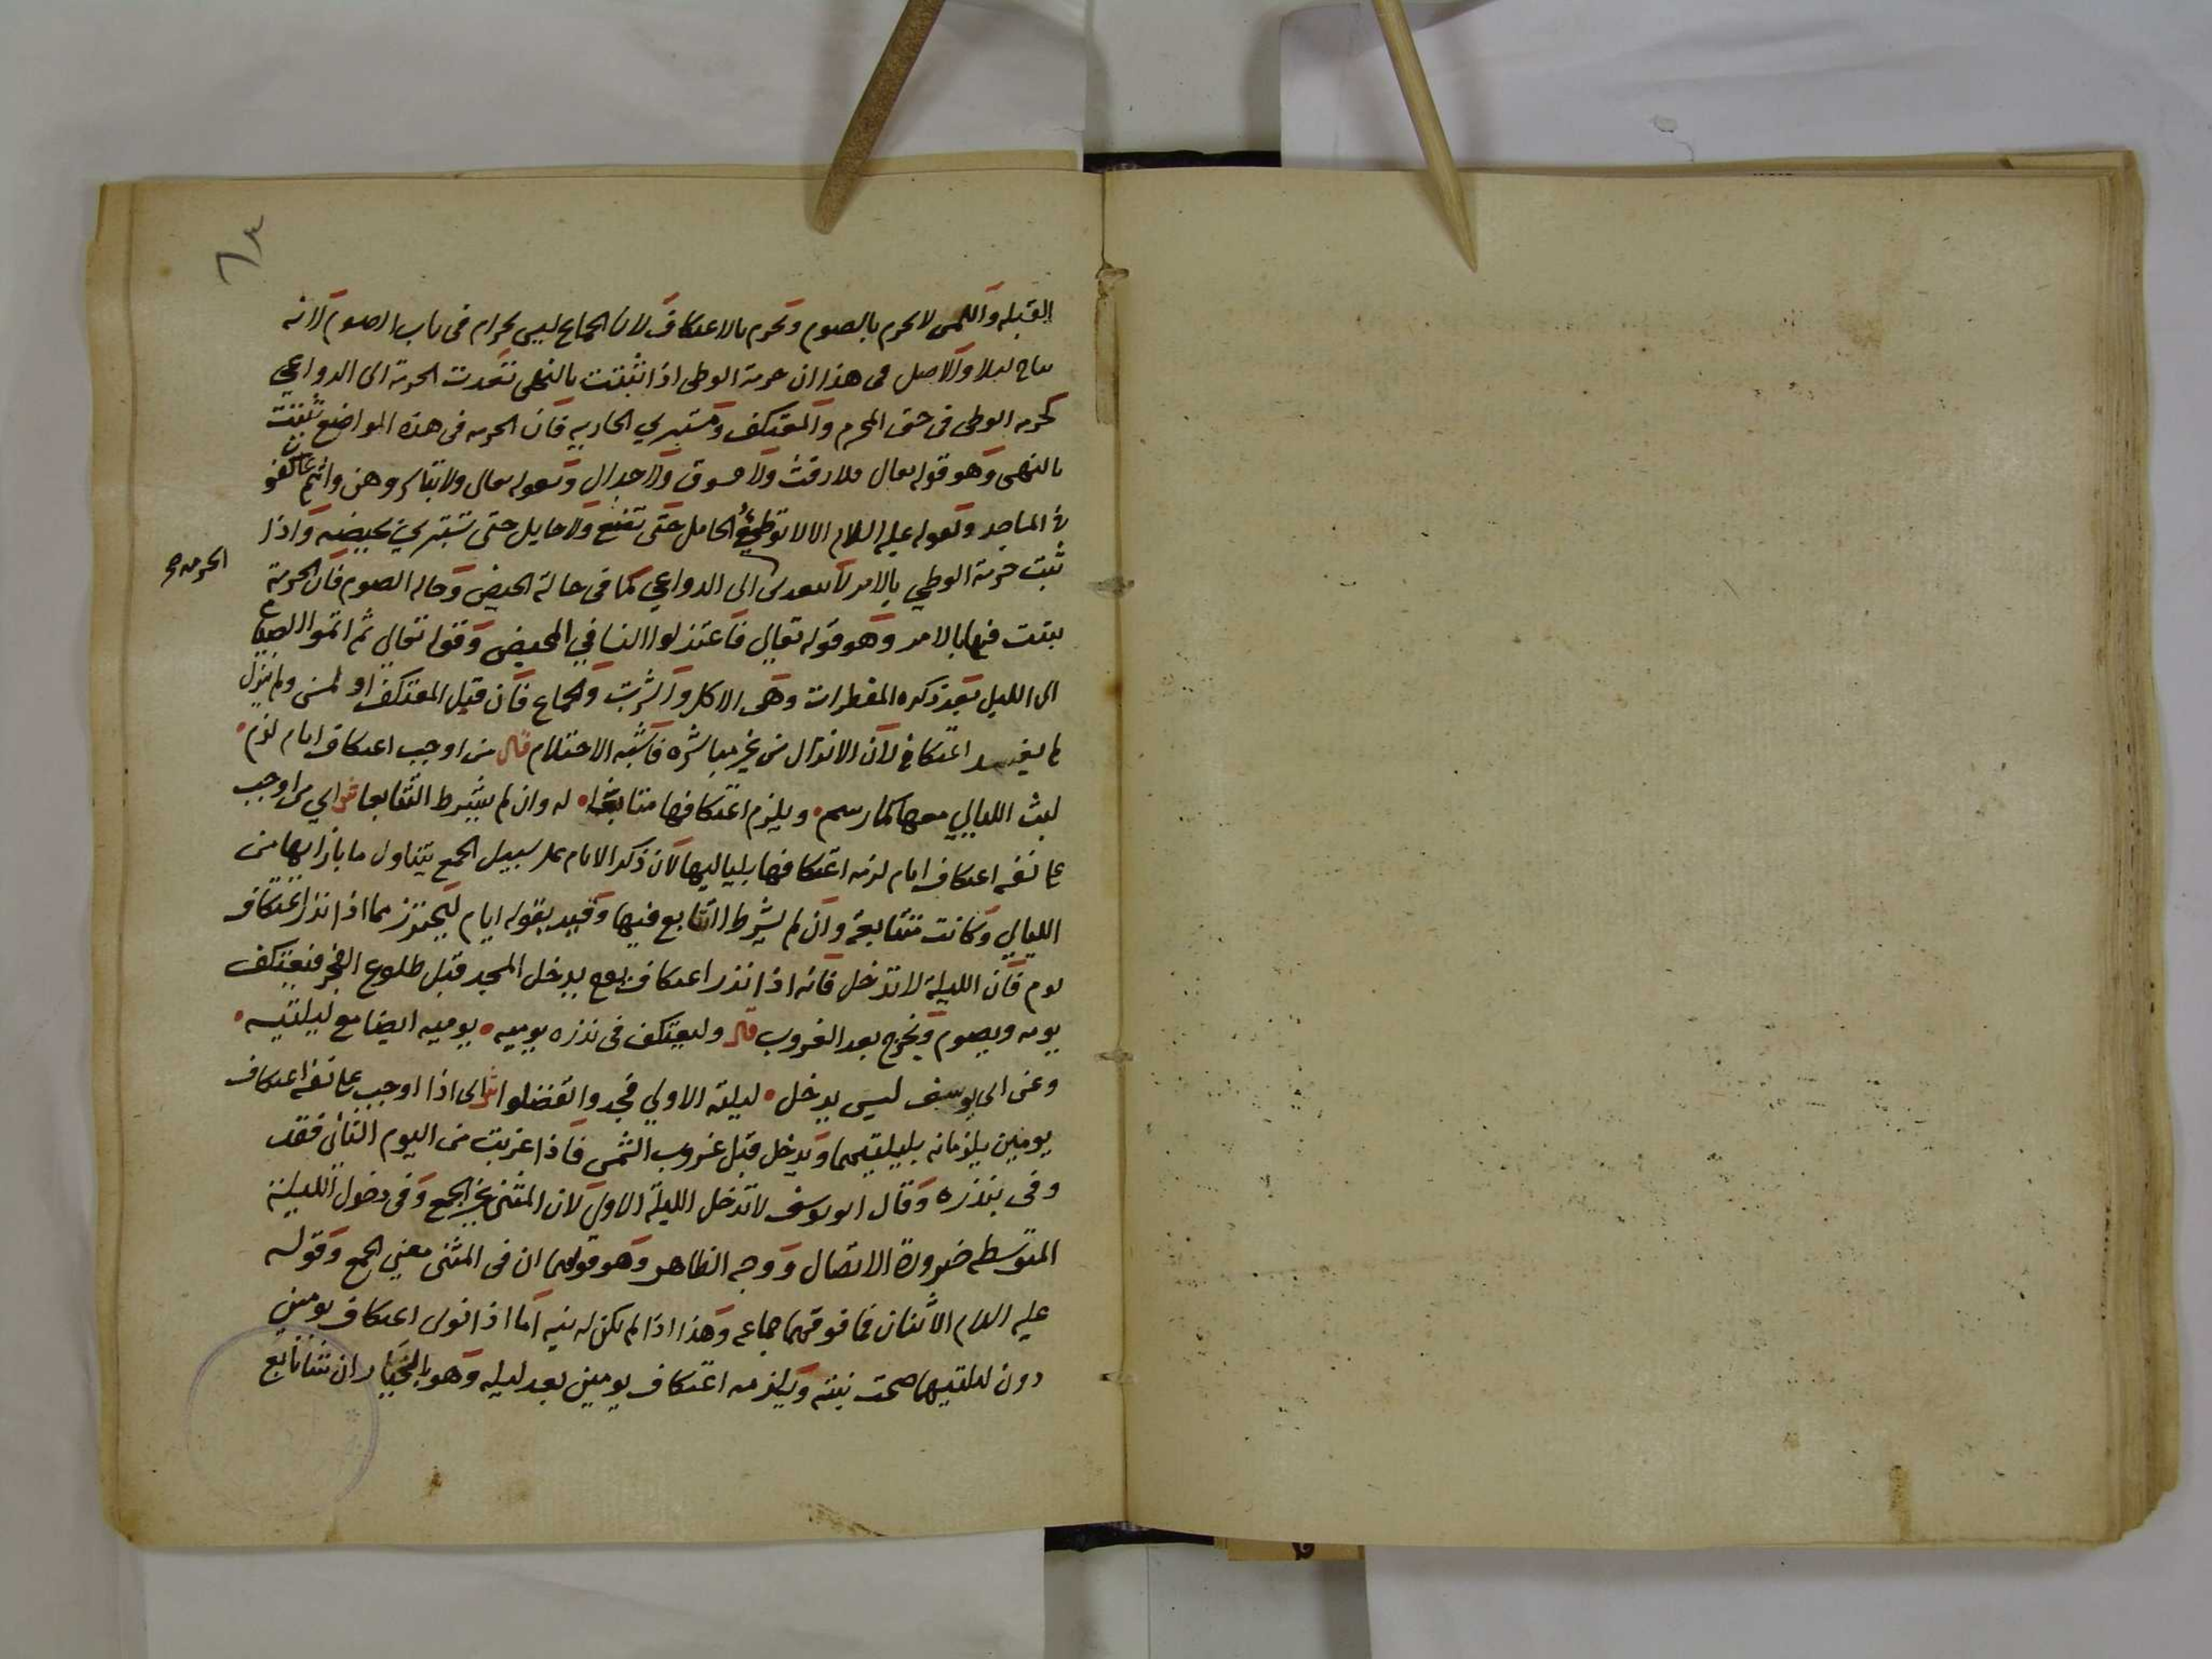 القبله واللمس لا يحرم بالصوم وتحرم بالاعتكاف لان الجماع ليس بحرام فى باب الصوم لانه
يباح ليلا والاصل فى هذا ان حرمة الوطى اذا ثبتت بالنهى تتعدت الحرمة الى الدواعي
كحرمه الوطى فى حق المحرم والمعتكف ومستبري الجاريه فان الحرمه فى هذه المواضع ثبتت
بالنهى وهو قوله تعالى فلا رفث ولا فسوق ولا جدال وبقوله تعالى ولا تباشروهن وانتم عاكفون
فى المساجد وبقوله عليه السلام الا لا توطئ الحامل حتى تضع ولا حايل حتى تستبري بحيضه واذا
ثبت حرمة الوطي بالامر لا يتعدى الى الدواعي كما فى حالة الحيض وحاله الصوم فان الحرمة
الحرمه
ثبتت فيها بالامر وهو قوله تعالي فاعتزلوا النسا في المحيض وقوله تعالي ثم اتموا الصيام
الى الليل بعد ذكره المفطرات وهى الاكل والشرب والجماع فان قبل المعتكف او لمس ولم ينزل
لم يفسد اعتكافه لان الانزال من غير مباشره فاشبه الاحتلام قال من اوجب اعتكاف ايام لزم
لبث الليالي معها كما رسم ويلزم اعتكافها متابعا له وان لم يشترط التتابعا ش اي من اوجب
على نفسه اعتكاف ايام لزمه اعتكافها بلياليها لان ذكر الايام على سبيل الجمع يتناول ما بازايها من
الليالي وكانت متتابعة وان لم يشرط التتابع فيها وقيد بقوله ايام ليحترز مما اذا نذر اعتكاف
يوم فان الليلة لا تدخل فانه اذا نذر اعتكاف يوم يدخل المسجد قبل طلوع الفجر فيعتكف
يومه ويصوم ويخرج بعد الغروب قال وليعتكف فى نذره يوميه يوميه ايضا مع ليلتيه
وعن ابى يوسف ليس يدخل ليلته الاولي فجدوا تفضلوا ش اى اذا اوجب على نفسه اعتكاف
يومين يلزمانه بليلتيهما ويدخل قبل غروب الشمس فاذا غربت من اليوم الثانى فقد
وفى بنذره وقال ابو يوسف لا تدخل الليلة الاولى لان المثنى غير الجمع وفى دخول الليلة
المتوسطه ضرورة الاتصال ووجه الظاهر وهو قولهما ان فى المثنى معني الجمع وقوله
عليه السلام الاثنان فما فوقهما جماعه وهذا اذا لم يكن له نيه اما اذا نوى اعتكاف يومين
دون ليلتيهما صحت نيته ويلزمه اعتكاف يومين بعد ليله وهو بالخيار ان شا تابع